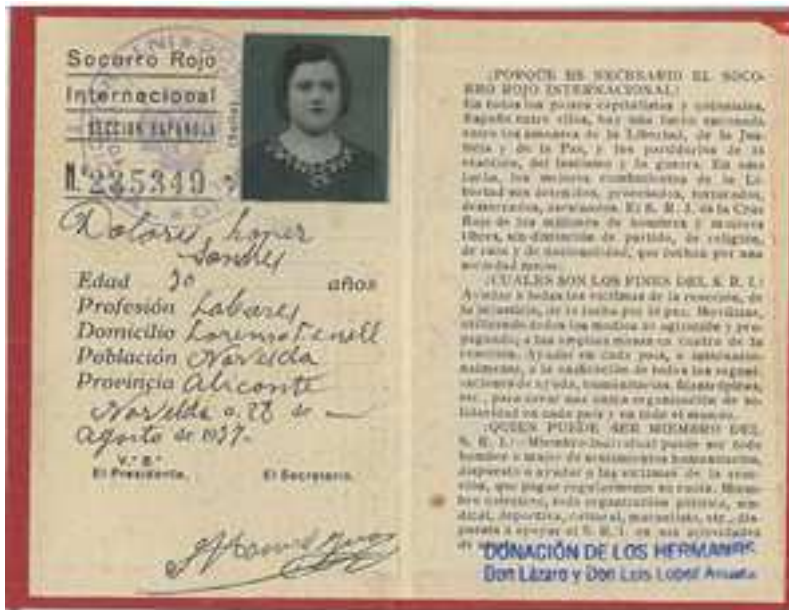 Socorro Rojo
Internacional
SECCION ESPAÑOLA
N.º 235349
Dolores Lopez
Sanchez
Edad 30 años
Profesión Labores
Domicilio Lorenzo
Población Novelda
Provincia Alicante
Novelda a 28 de
Agosto de 1937-
V.º B.º
El Presidente. El Secretario.
¿PORQUE ES NECESARIO EL SOCO-
RRO ROJO INTERNACIONAL?
En todos los países capitalistas y coloniales,
España entre ellos, hay una lucha enconada
entre los amantes de la Libertad, de la Jus-
ticia y de la Paz, y los partidarios de la
reacción, del fascismo y la guerra. En esta
lucha, los mejores combatientes de la Li-
bertad son detenidos, procesados, torturados,
desterrados, asesinados. El S. R. I. es la Cruz
Roja de los millones de hombres y mujeres
libres, sin distinción de partido, de religión,
de raza y de nacionalidad, que luchan por una
sociedad mejor.
¿CUALES SON LOS FINES DEL S. R. I.?
Ayudar a todas las víctimas de la reacción, de
la injusticia, de la lucha por la paz. Movilizar,
utilizando todos los medios de agitación y pro-
paganda, a las amplias masas en contra de la
reacción. Ayudar en cada país, e internacio-
nalmente, a la unificación de todas las organi-
zaciones de ayuda, humanitarias, filantrópicas,
etc., para crear una única organización de so-
lidaridad en cada país y en todo el mundo.
¿QUIEN PUEDE SER MIEMBRO DEL
S. R. I.? Miembro individual puede ser todo
hombre o mujer de sentimientos humanitarios,
dispuesto a ayudar a las víctimas de la reac-
ción, que pague regularmente su cuota. Miem-
bro colectivo, toda organización política, sin-
dical, deportiva, cultural, mutualista, etc., dis-
puesta a apoyar al S. R. I. en sus actividades
de
DONACIÓN DE LOS HERMANOS
Don Lázaro y Don Luis López